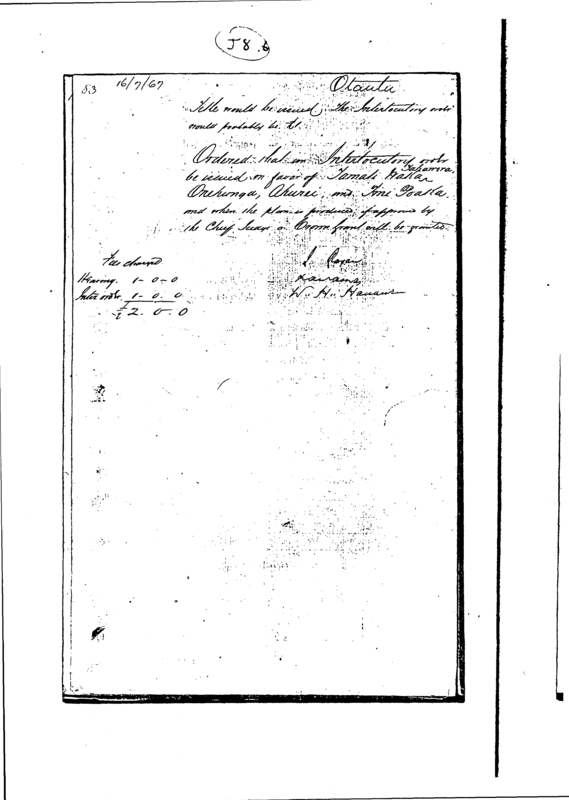 J8.6
83 16/7/67 Otautu
Title would be issued. The Interlocutory order
would probably be £1.
Ordered that an Interlocutory order
be issued in favor of Tamati
Onehunga, Akurei, and Tini
and when the plan is produced & approved by
the Chief Judge a Crown Grant will be granted.
Fees charged
Hearing. 1-0-0
Inter order. 1-0.0
£2.0.0
W. H.